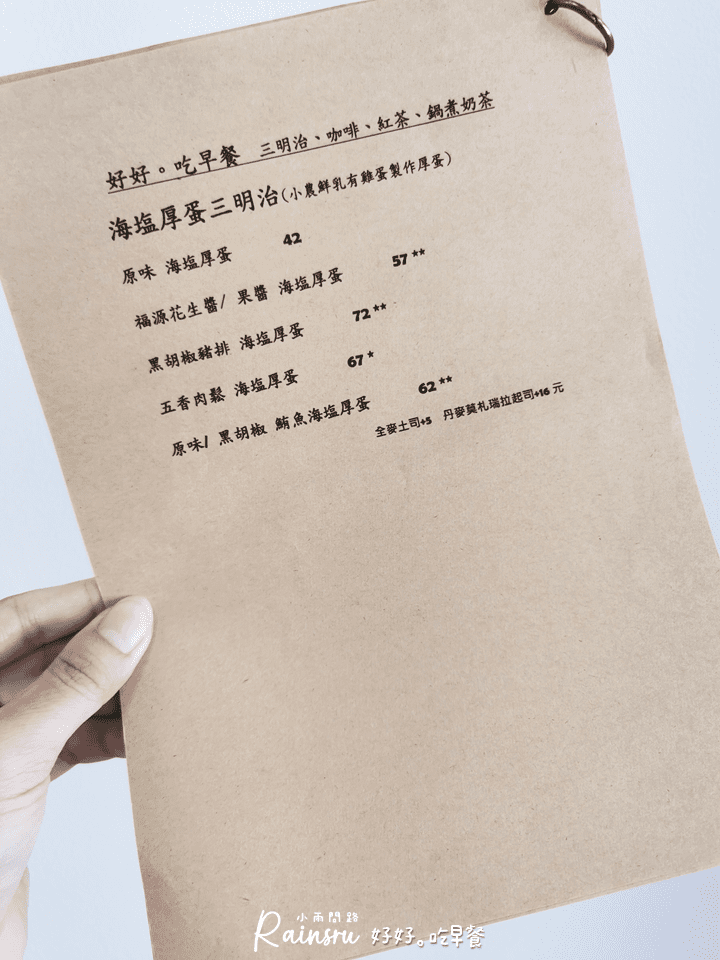 好好。吃早餐 三明治、咖啡、紅茶、鍋煮奶茶
海塩厚蛋三明治(小農鮮乳有雞蛋製作厚蛋)
原味 海塩厚蛋 42
福源花生醬/ 果醬 海塩厚蛋 57**
黑胡椒豬排 海塩厚蛋 72**
五香肉鬆 海塩厚蛋 67*
原味/ 黑胡椒 鮪魚海塩厚蛋 62**
全麥土司+5 丹麥莫札瑞拉起司+16 元
小雨問路
Rainsru 好好。吃早餐